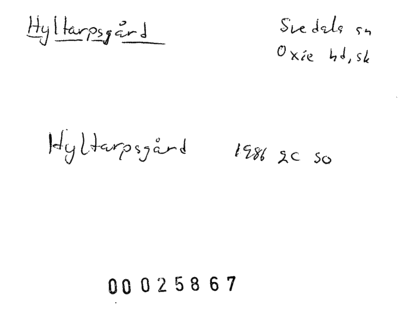 Hyltarpsgård
Svedala sn
Oxie hd, sk
Hyltarpsgård 1986 2C SO
00025867